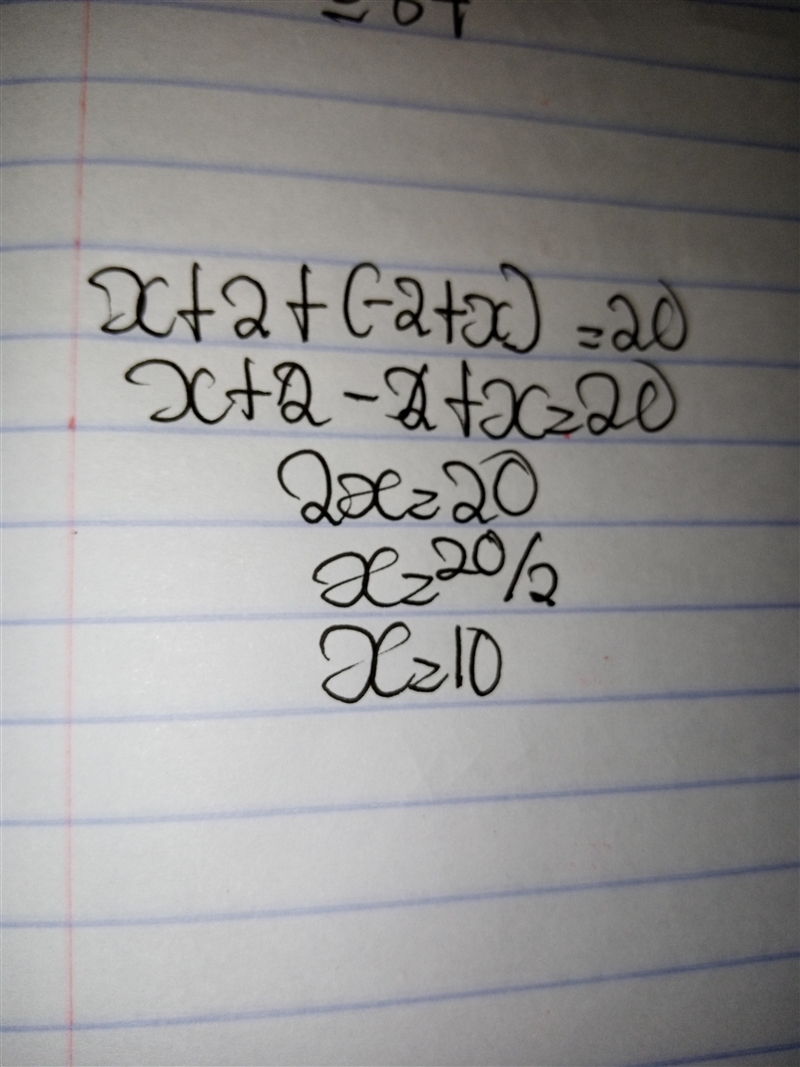 x+2+(-2+x) =20
x+2-2+x=20
2x=20
x=20/2
x=10